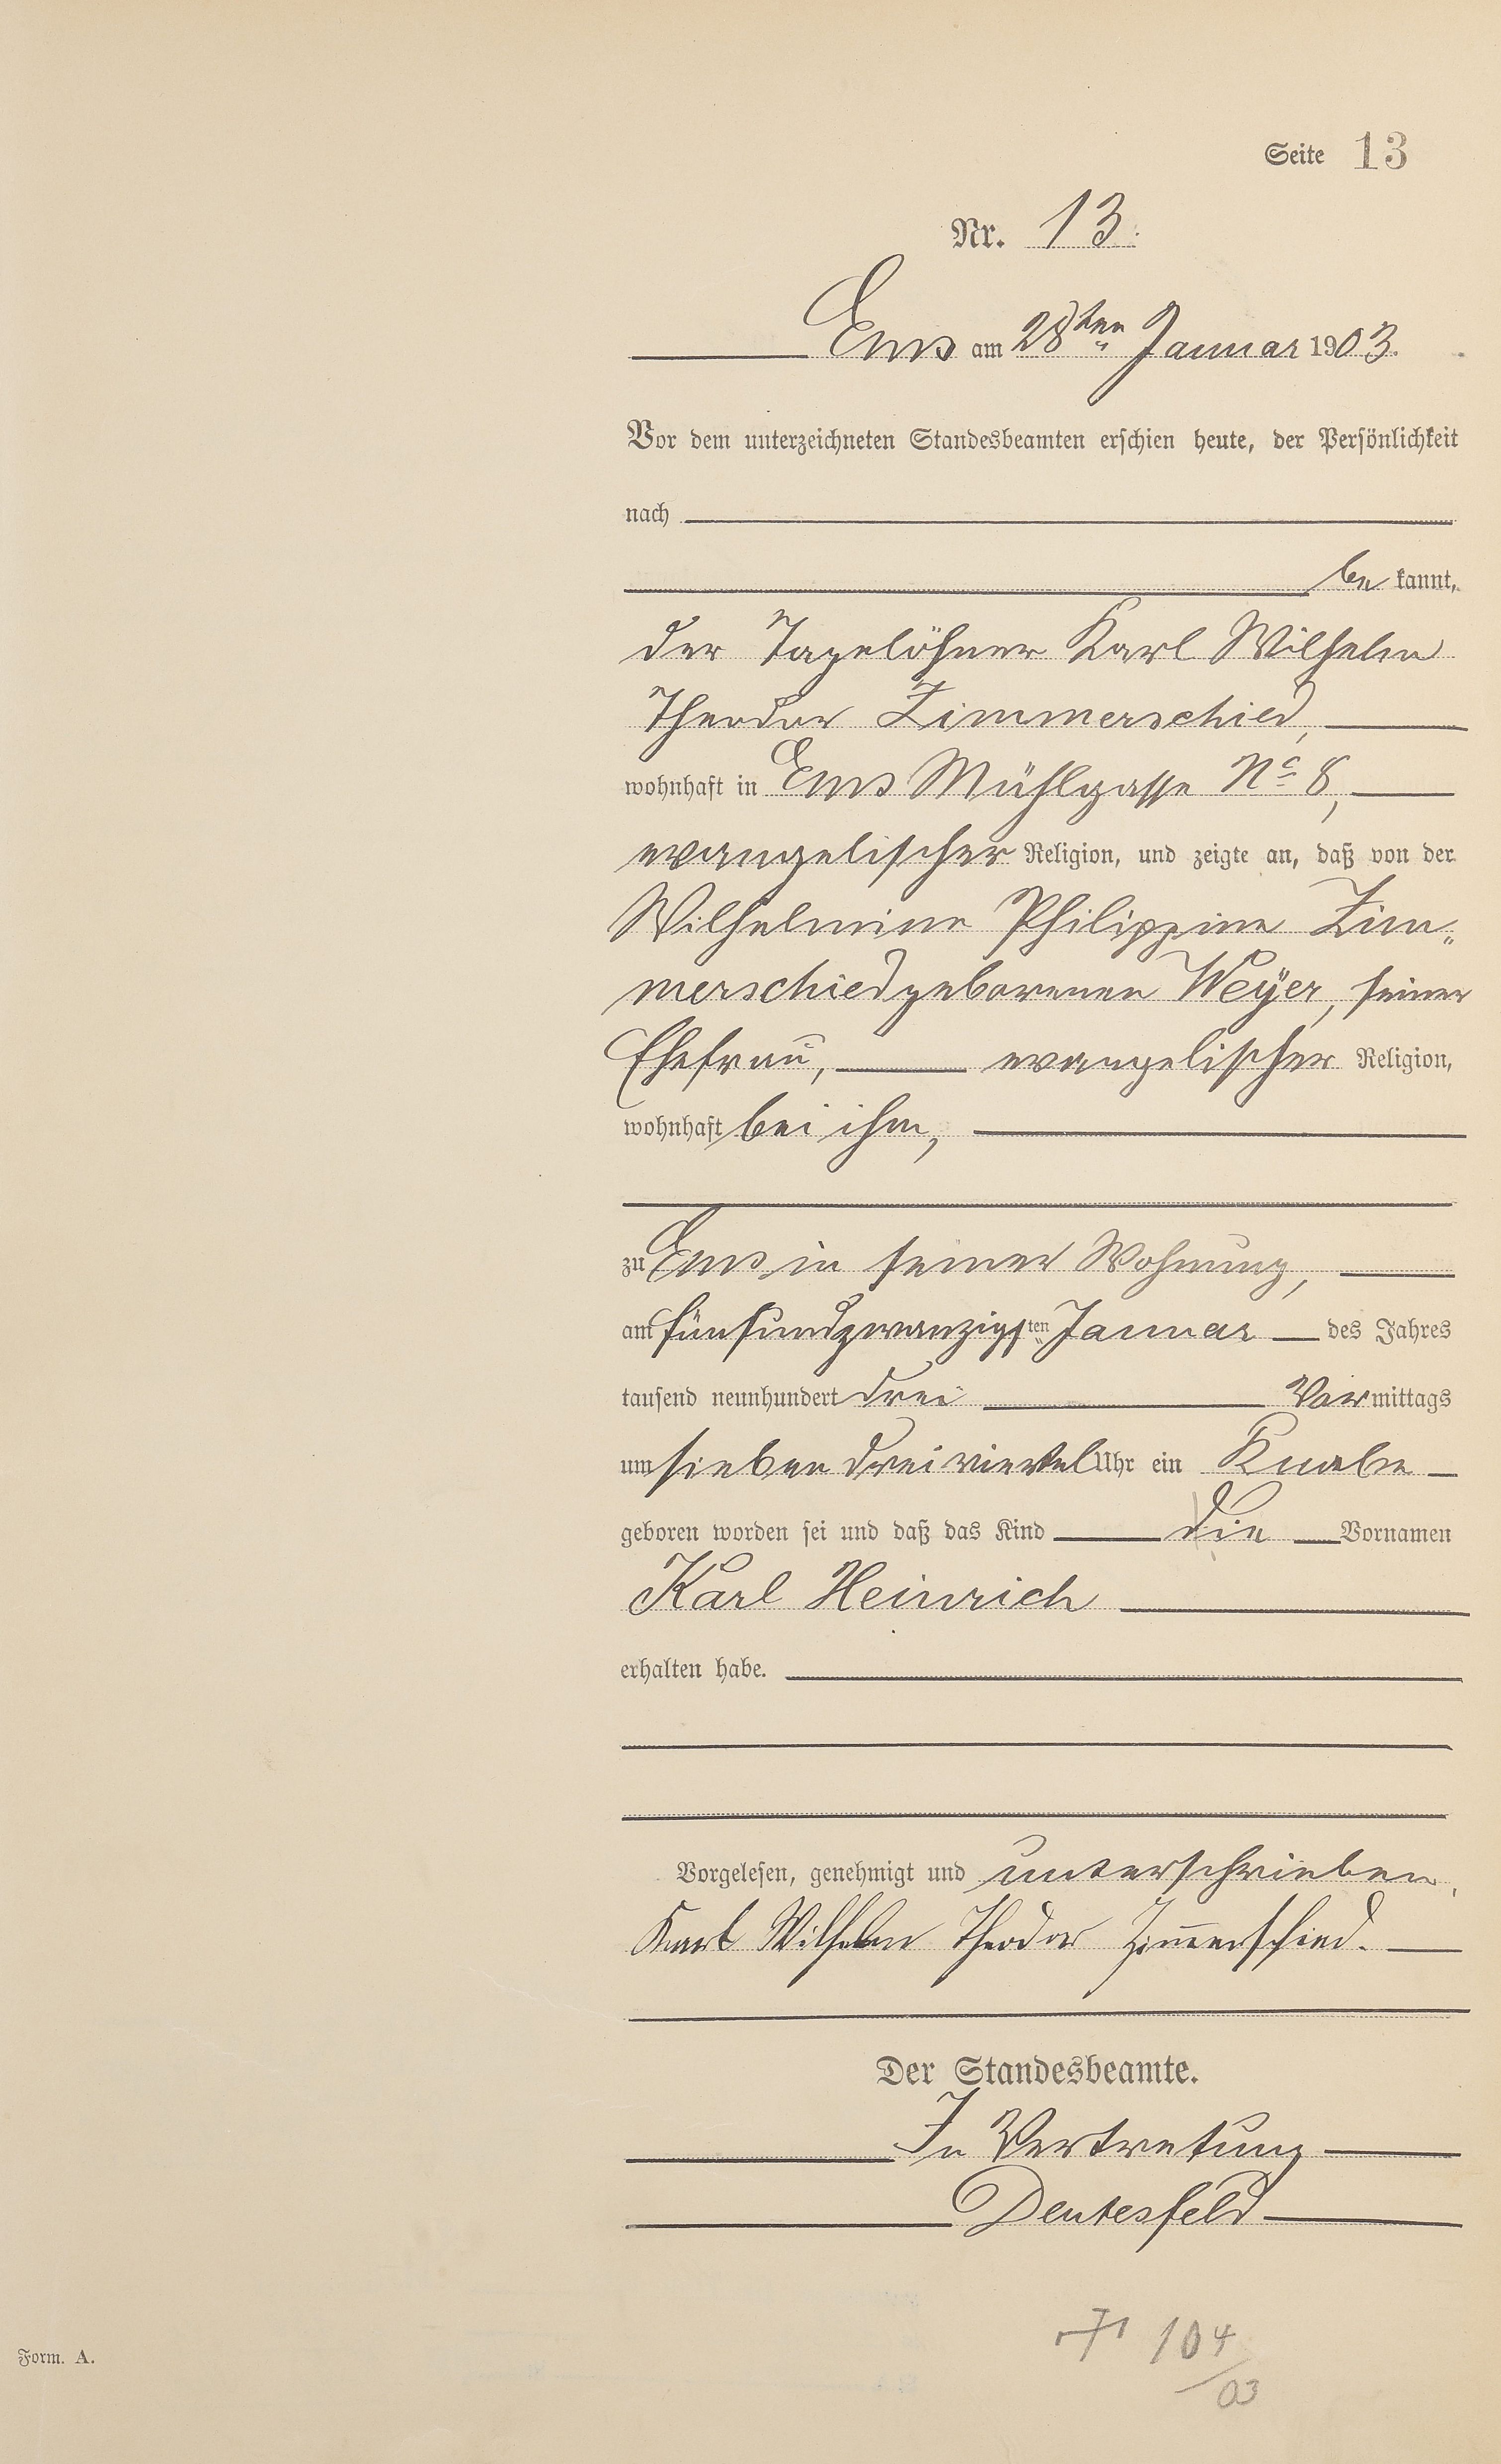 Seite 13
Nr. 13.
Ems am 28ten Januar 1903.
Vor dem unterzeichneten Standesbeamten erschien heute, der Persönlichkeit
nach
be kannt,
der Tagelöhner Karl Wilhelm
Theodor Zimmerschied,
wohnhaft in Ems Mühlgasse No 8,
evangelischer Religion, und zeigte an, daß von der
Wilhelmine Philippine Zim„
merschied geborenen Weÿer, seiner
Ehefrau, evangelischer Religion,
wohnhaft bei ihm,
zu Ems in seiner Wohnung,
am fünfundzwanzigsten Januar des Jahres
tausend neunhundert drei Vormittags
um sieben dreiviertel Uhr ein Knabe
geboren worden sei und daß das Kind die Vornamen
Karl Heinrich
erhalten habe.
Vorgelesen, genehmigt und unterschrieben.
Karl Wilhelm Theodor Zim̅erschied.
Der Standesbeamte.
In Vertretung
Deutesfeld
Form. A.
104
/03